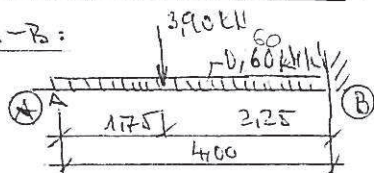 -B:
3,90 kN
60
0,60 kN/m
A A B
1,75 2,25
4,00